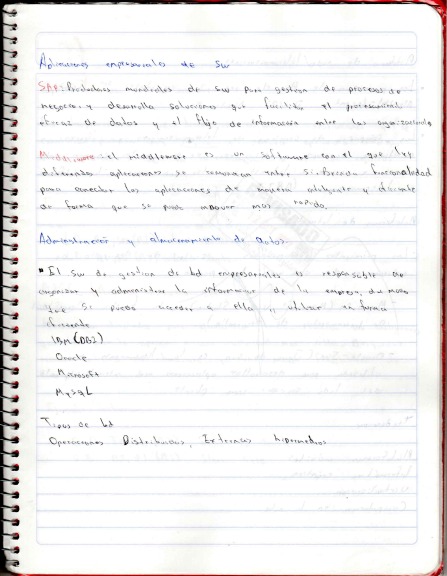 Aplicaciones empresariales de sw
SAP: Productores mundiales de sw para gestion de procesos de
negocio, y desarrolla soluciones que facilitan el procesamiento
eficaz de datos y el flujo de informacion entre las organizaciones
Middleware: el middleware es un software con el que las
diferentes aplicaciones se comunican entre si. Brinda funcionalidad
para conectar las aplicaciones de manera inteligente y eficiente
de forma que se puede innovar mas rapido.
Administración y almacenamiento de datos.
El sw de gestion de bd empresariales es responsable de
organizar y administrar la informacion de la empresa, de modo
que se pueda acceder a ella y utilizar en forma
eficiente
IBM (DB2)
Oracle
Microsoft
MySQL
Tipos de bd
Operaciones Distribuidas, Externas hipermedios